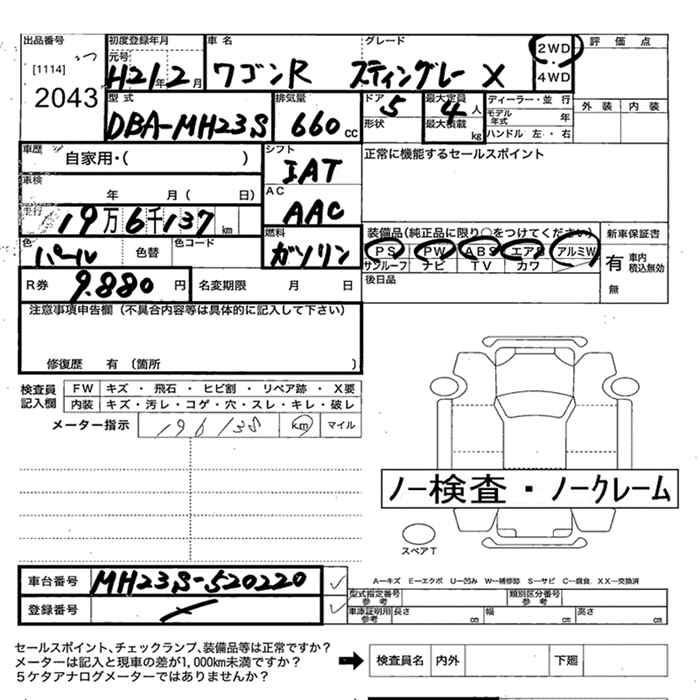 出品番号 初度登録年月 車名 グレード 2WD・4WD 評価点
[1114] 元号 H21年2月 ワゴンR スティングレー X
2043 型式 排気量 ドア 最大定員 ディーラー・並行 外装 内装
DBA-MH23S 660cc 5 4人 モデル年式 年
形状 最大積載 kg ハンドル 左・右
車歴 自家用・( ) シフト 正常に機能するセールスポイント
IAT
車検 年 月(日) AC
走行 19万6千137km AAC 装備品(純正品に限り○をつけてください) 新車保証書
色 パール 色替 色コード 燃料 ガソリン PS PW ABS エアB アルミW 有 車内積込無効
サンルーフ ナビ TV カワ 無
R券 9.880円 名変期限 月 日 後日品
注意事項申告欄(不具合内容等は具体的に記入して下さい)
修復歴 有(箇所 )
検査員記入欄 FW キズ・飛石・ヒビ割・リペア跡・X要
内装 キズ・汚レ・コゲ・穴・スレ・キレ・破レ
メーター指示 196138 km マイル
ノー検査・ノークレーム
スペアT
車台番号 MH23S-520220 A―キズ E―エクボ U―凹み W―補修跡 S―サビ C―腐食 XX―交換済
登録番号 型式指定番号 参考 類別区分番号 参考
車庫証明用参考 長さ cm 幅 cm 高さ cm
セールスポイント、チェックランプ、装備品等は正常ですか?
メーターは記入と現車の差が1,000km未満ですか? 検査員名 内外 下廻
5ケタアナログメーターではありませんか?